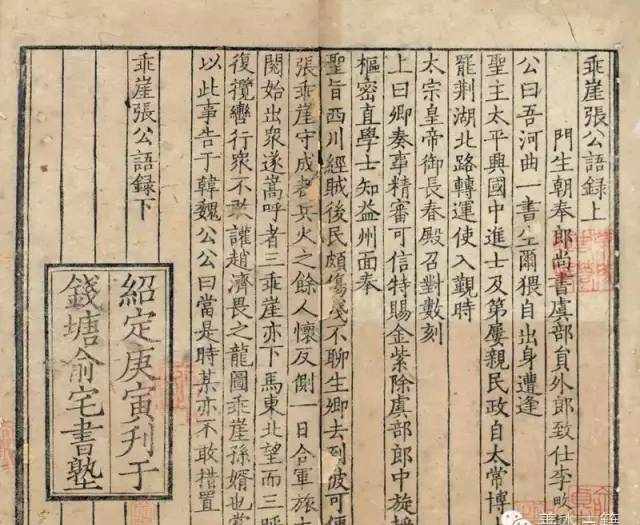 乖崖張公語録上
門生朝奉郎尚書虞部員外郎致仕李畋
公曰吾河曲一書生爾猥自出身遭逢
聖主太平興國中進士及第屢親民政自太常博
罷荆湖北路轉運使入觀時
太宗皇帝御長春殿召對數刻
上曰卿奏事精審可信特賜金紫除虞部郎中旋
樞密直學士知益州面奉
聖旨西川經賊後民頗傷殘不聊生卿去到彼可便
張乖崖守成都兵火之餘人懷反側一日合軍旅
閱始出衆遂嵩呼者三乖崖亦下馬東北望而三呼
復攬轡行衆不敢讙趙濟畏之龍圖乖崖孫婿也嘗
以此事告于韓魏公公曰當是時某亦不敢措置
乖崖張公語録下
紹定庚寅刊于
錢塘俞宅書塾